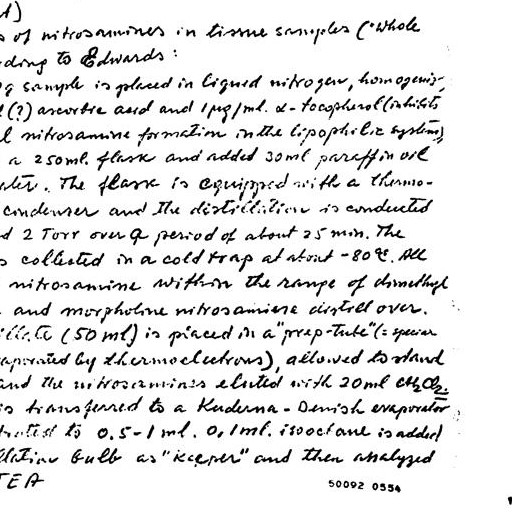 s of nitrosamines in tissue samples ("whole
ding to Edwards:
g sample is placed in liquid nitrogen, homogenis,
(?) ascorbic acid and 1 µg/ml. α-tocopherol (inhibits
l nitrosamine formation in the lipophilic system),
a 250 ml. flask and added 30 ml paraffin oil
ater. The flask is equipped with a thermo-
condenser and the distillation is conducted
d 2 Torr over a period of about 25 min. The
s collected in a cold trap at about -80°C. All
nitrosamine within the range of dimethyl
and morpholine nitrosamine distil over.
illate (50 ml) is placed in a "prep-tube" (= special
aporated by thermoelectrons), allowed to stand
and the nitrosamines eluted with 20 ml CH2Cl2.
is transferred to a Kuderna-Denish evaporator
trated to 0.5-1 ml. 0,1 ml. isooctane is added
llation bulb as "keeper" and then analyzed
TEA
50092 0554